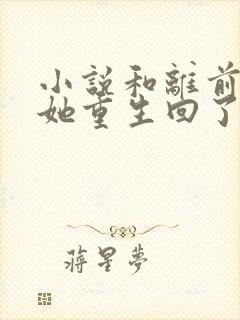 小說和離前
她重生回了
蔣星夢